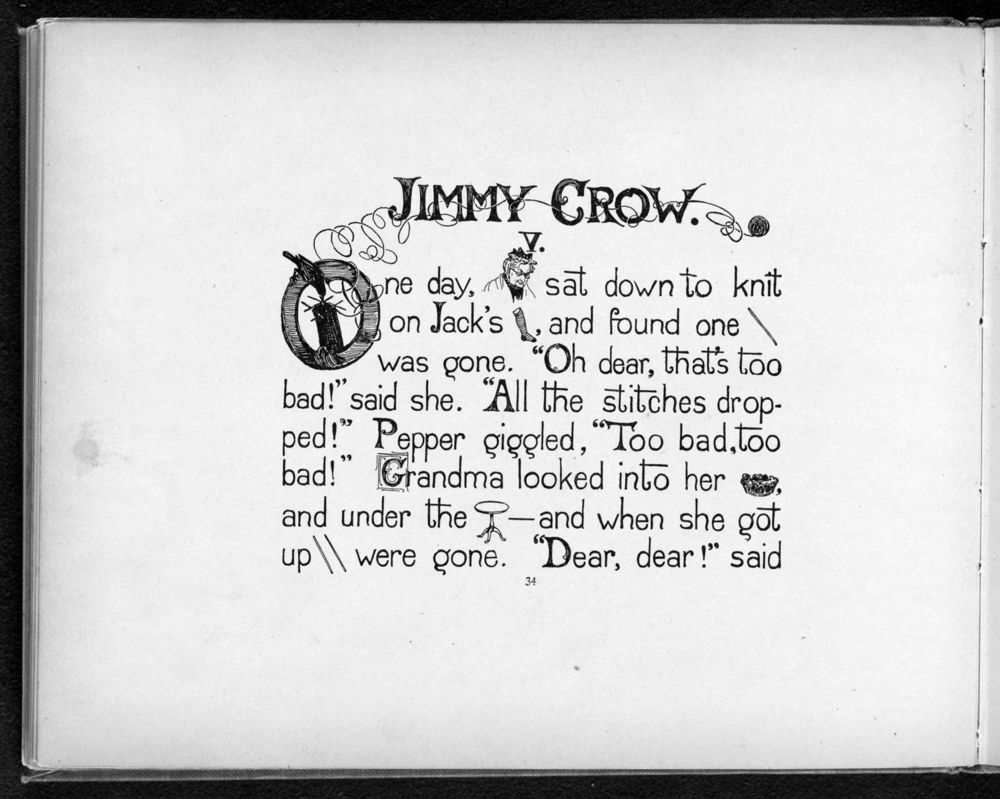 JIMMY CROW.
V.
One day, sat down to knit
on Jack's , and found one
was gone. "Oh dear, that's too
bad!" said she. "All the stitches drop-
ped!" Pepper giggled, "Too bad, too
bad!" Grandma looked into her ,
and under the —and when she got
up were gone. "Dear, dear!" said
34